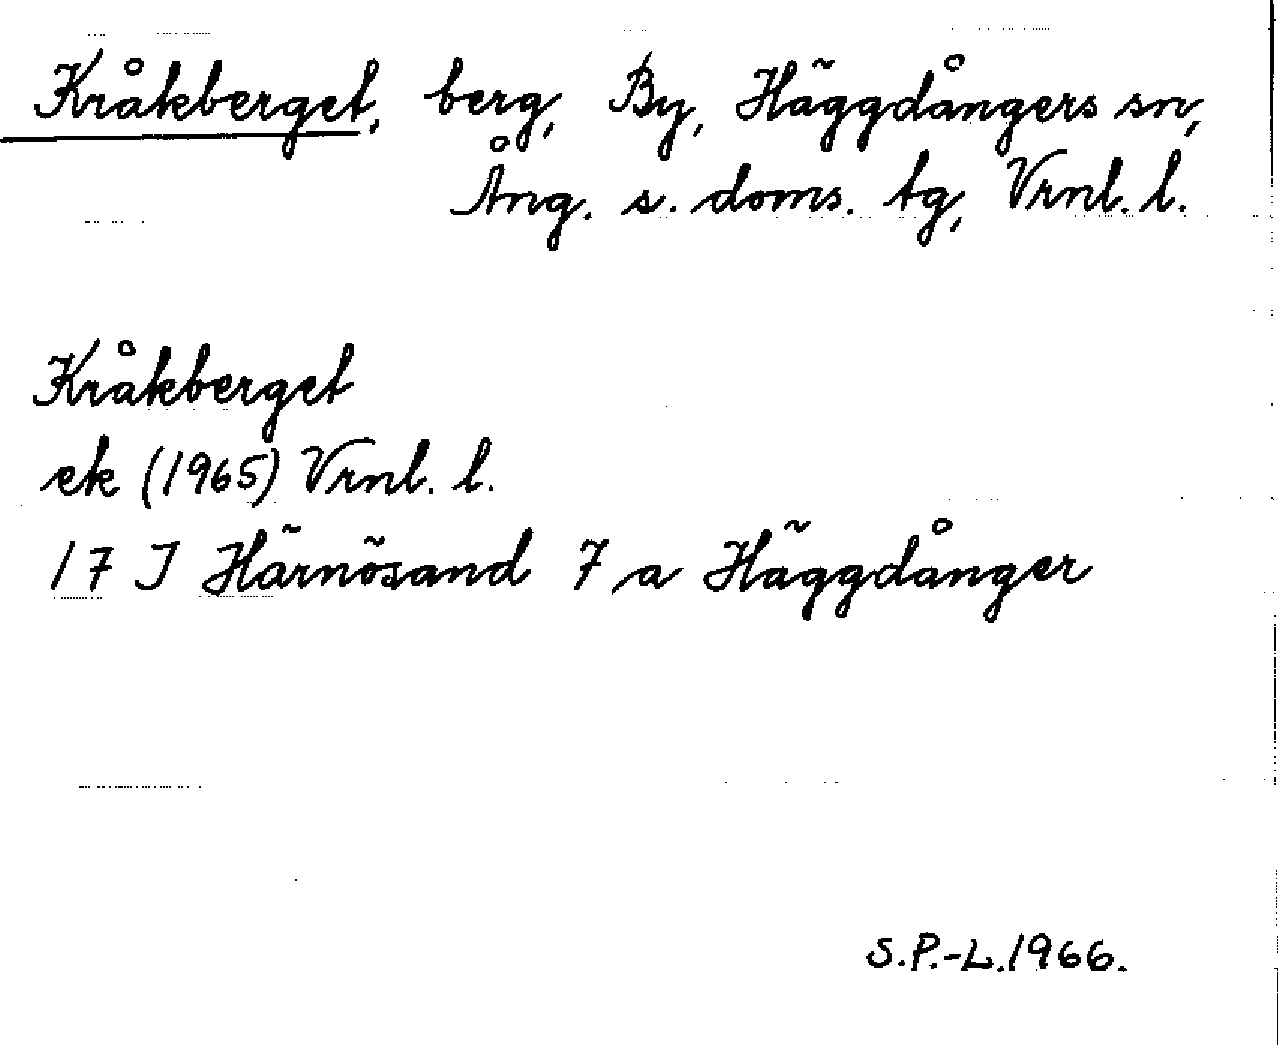 Kråkberget, berg, By, Häggdångers sn,
Ång. s. doms. tg, Vrnl. l.
Kråkberget
ek (1965) Vrnl. l.
17 J Härnösand 7 a Häggdånger
S.P.-L.1966.